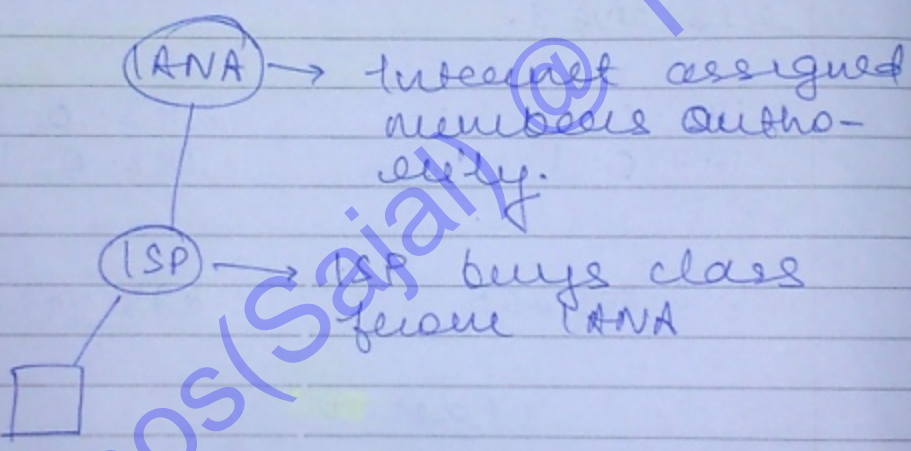 IANA → Internet assigned
numbers autho-
rity.
ISP → ISP buys class
from IANA
os(Sajal) @ T